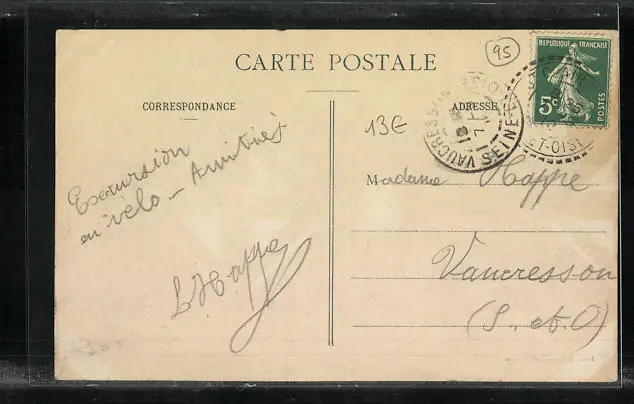 95
CARTE POSTALE
CORRESPONDANCE
ADRESSE
13€
REPUBLIQUE FRANÇAISE
5c
POSTES
VAUCRESSON
SEINE
T-OISE
Excursion
en vélo - Amitiés
L Happe
Madame Happe
Vaucresson
(S. et O)